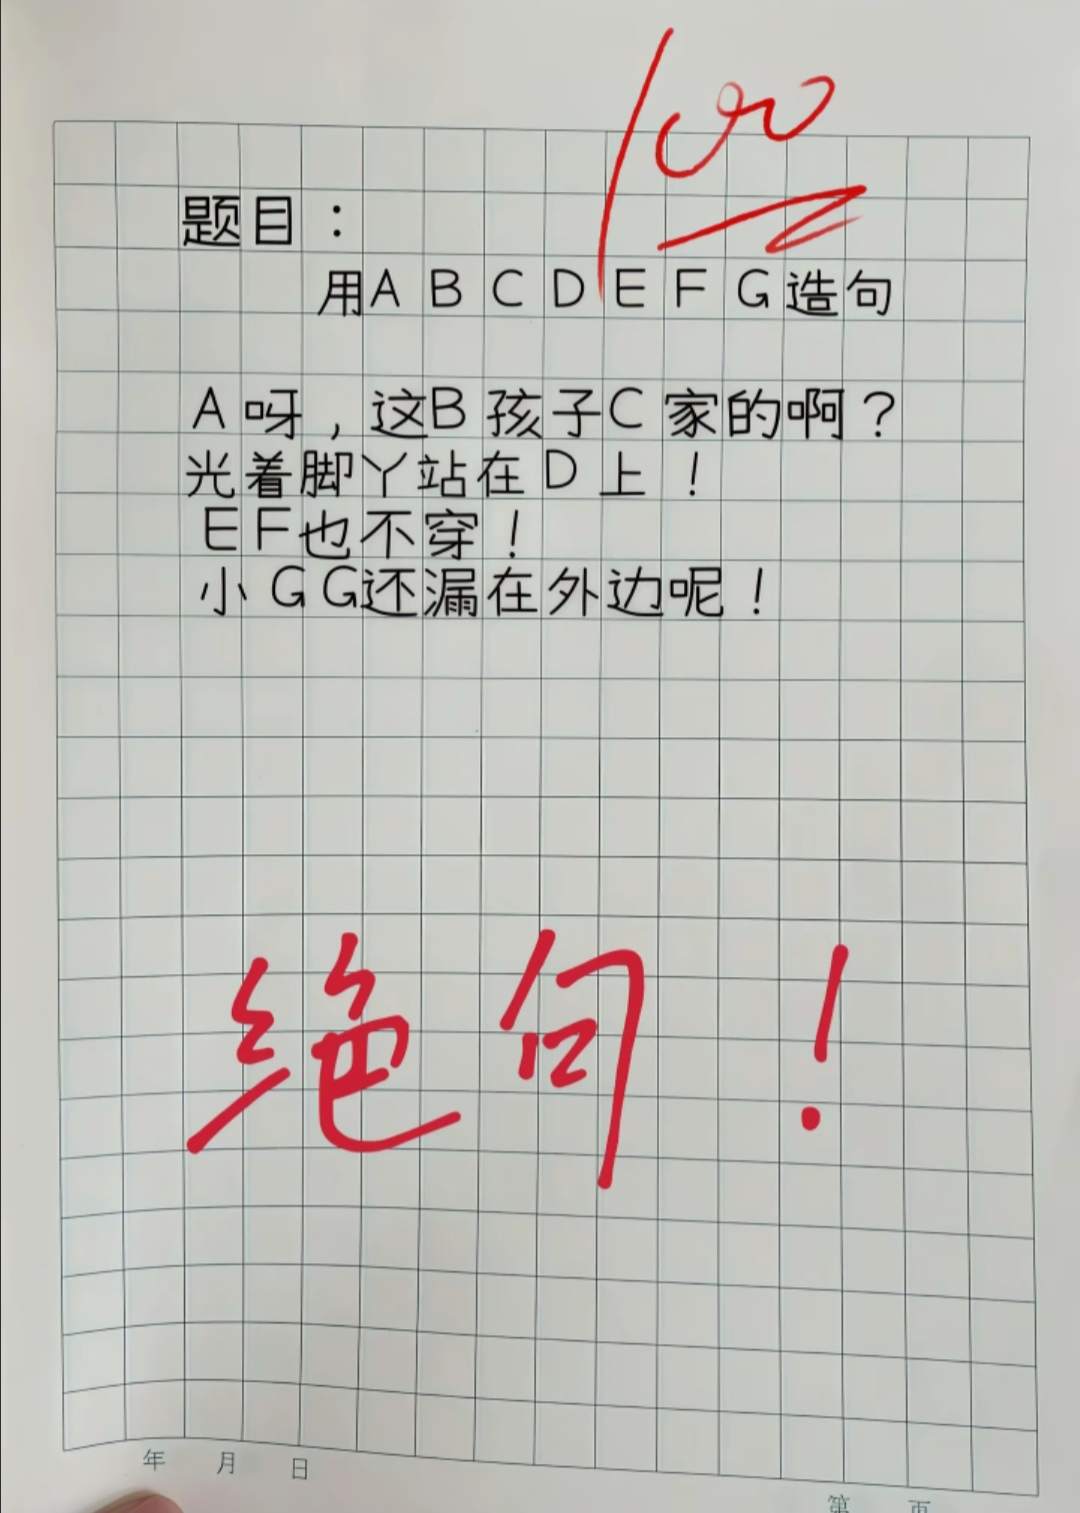 100
题目：
用A B C D E F G造句
A呀，这B孩子C家的啊？
光着脚丫站在D上！
EF也不穿！
小GG还漏在外边呢！
绝句！
年 月 日
第 页